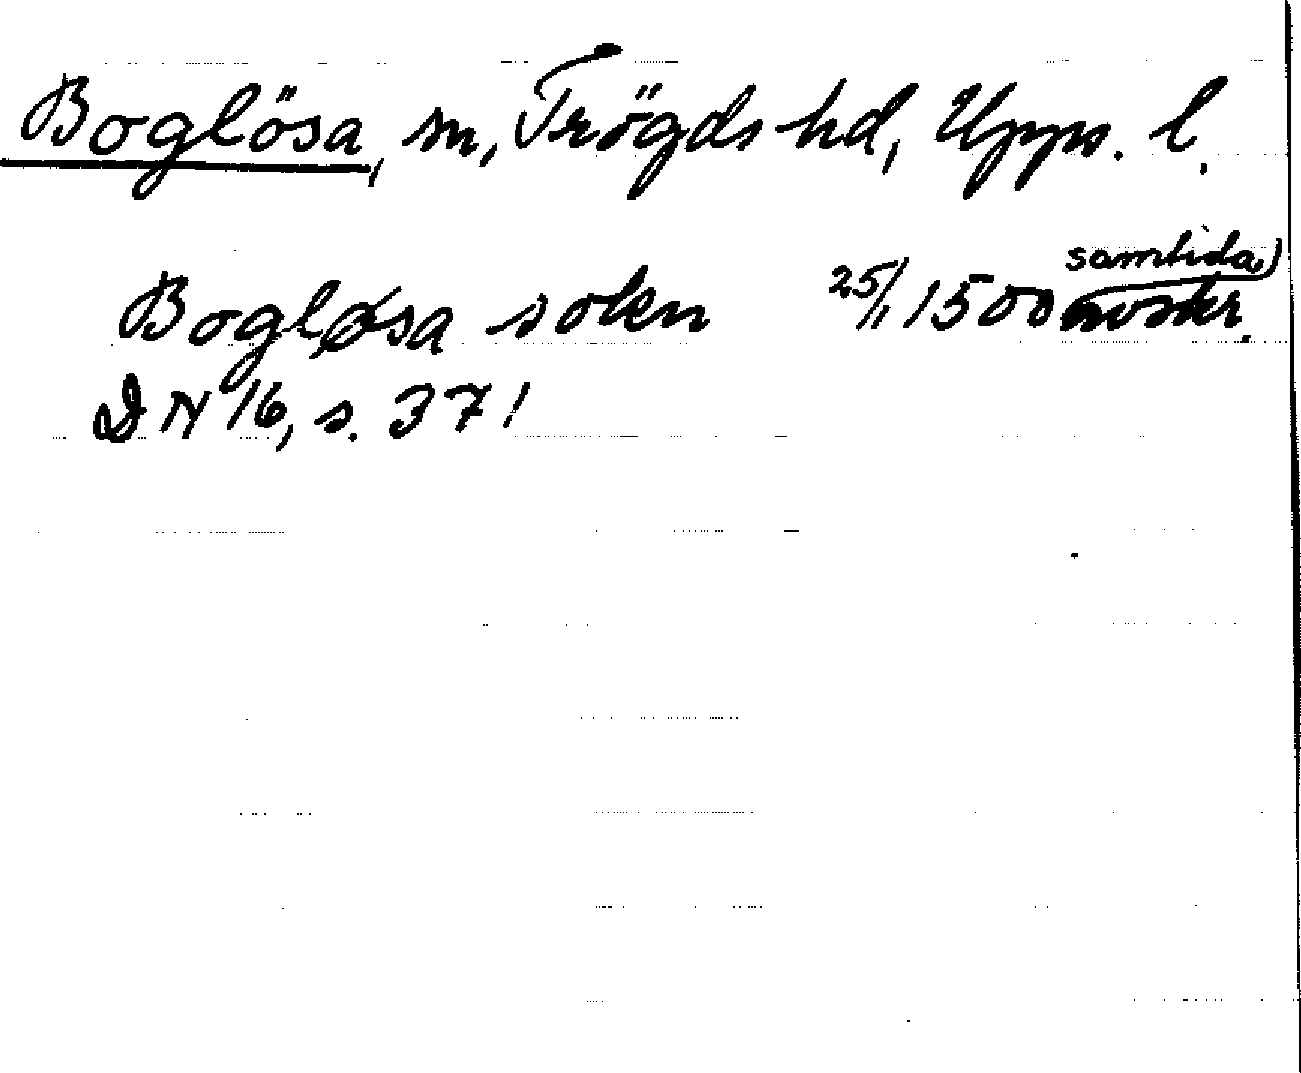 Boglösa, sn, Trögds hd, Upps. l.
Bogløsa soken 25/1 1500 samtida) avskr.
DN 16, s. 371